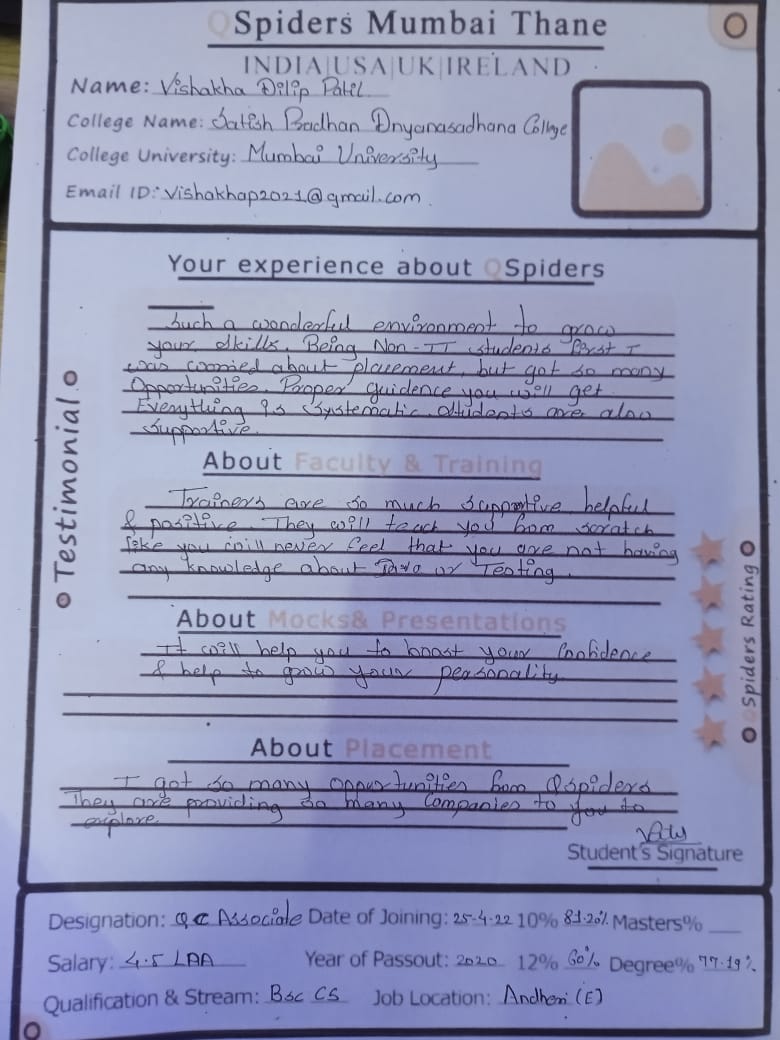 QSpiders Mumbai Thane
INDIA|USA|UK|IRELAND
Name: Vishakha Dilip Patil
College Name: Satish Pradhan Dnyanasadhana College
College University: Mumbai University
Email ID: Vishakhap2021@gmail.com.
Your experience about QSpiders
Such a wonderful environment to grow
your skills. Being Non-IT students first I
was worried about placement, but got so many
Opportunities. Proper guidence you will get
Everything is systematic. Students are also
supportive.
About Faculty & Training
Trainers are so much supportive helpful
& positive. They will teach you from scratch
like you will never feel that you are not having
any knowledge about Java or Testing.
About Mocks& Presentations
It will help you to boost your Confidence
& help to grow your personality
About Placement
I got so many oppurtunities from Qspiders
They are providing so many Companies to you to
explore.
Student's Signature
Testimonial
QSpiders Rating
Designation: QC Associate Date of Joining: 25-4-22 10% 81.20% Masters%
Salary: 4.5 LAA Year of Passout: 2020 12% 60% Degree% 77.19%
Qualification & Stream: Bsc CS Job Location: Andheri (E)